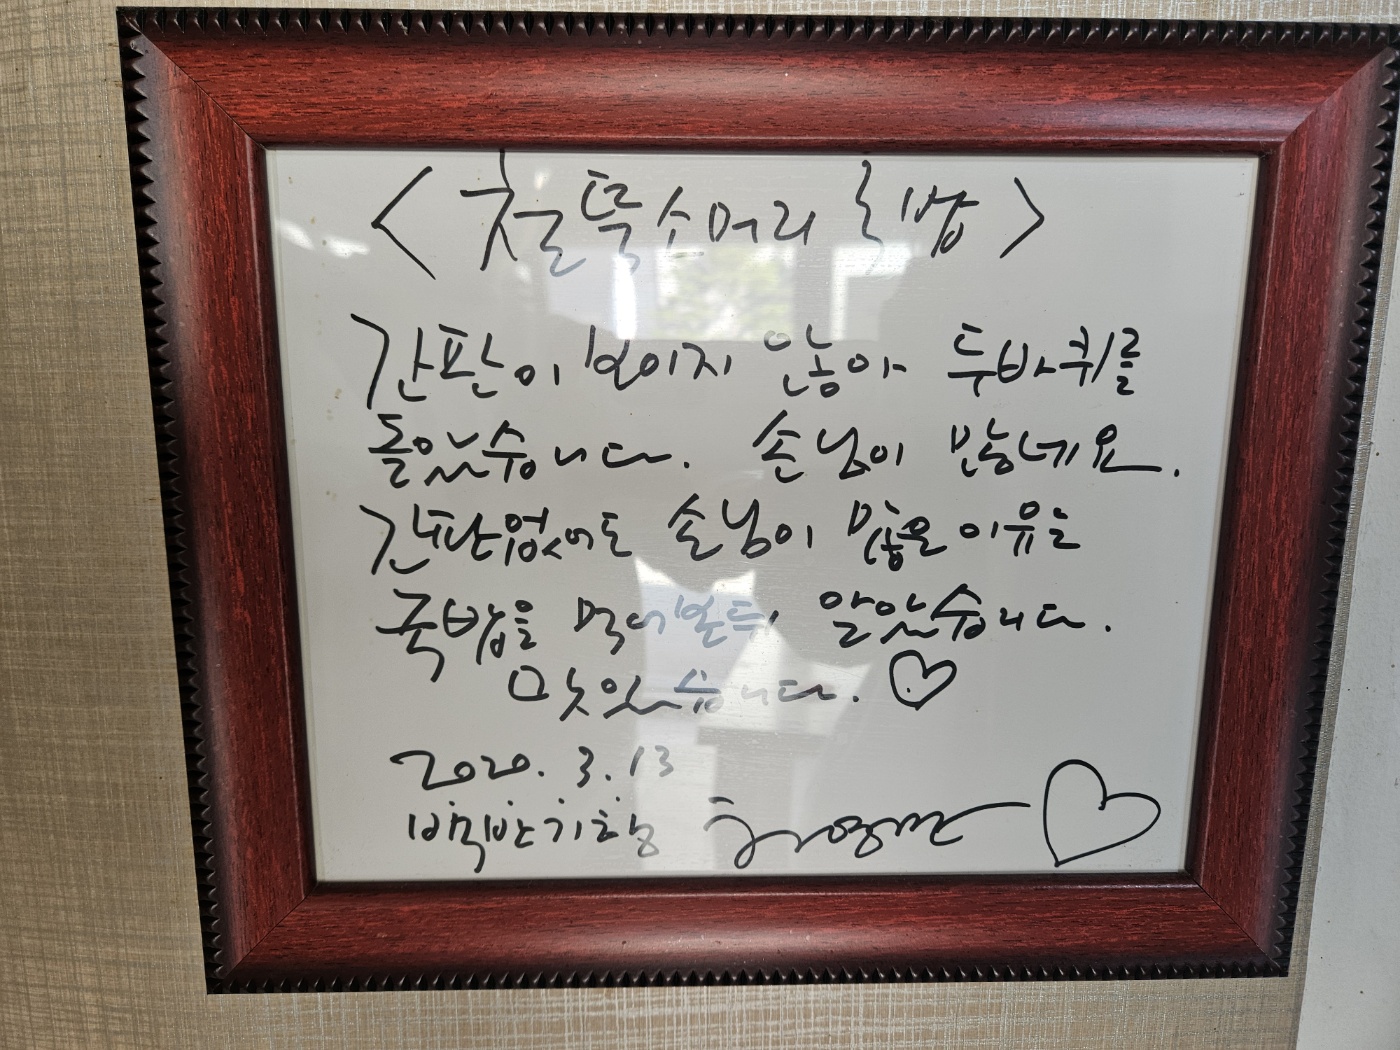 <굴뚝소머리국밥>
간판이 보이지 않아 두바퀴를
돌았습니다. 손님이 많네요.
간판없어도 손님이 많은 이유는
국밥을 먹어본후 알았습니다.
맛있습니다. ♡
2020. 3. 13
백반기행 허영만 ♡